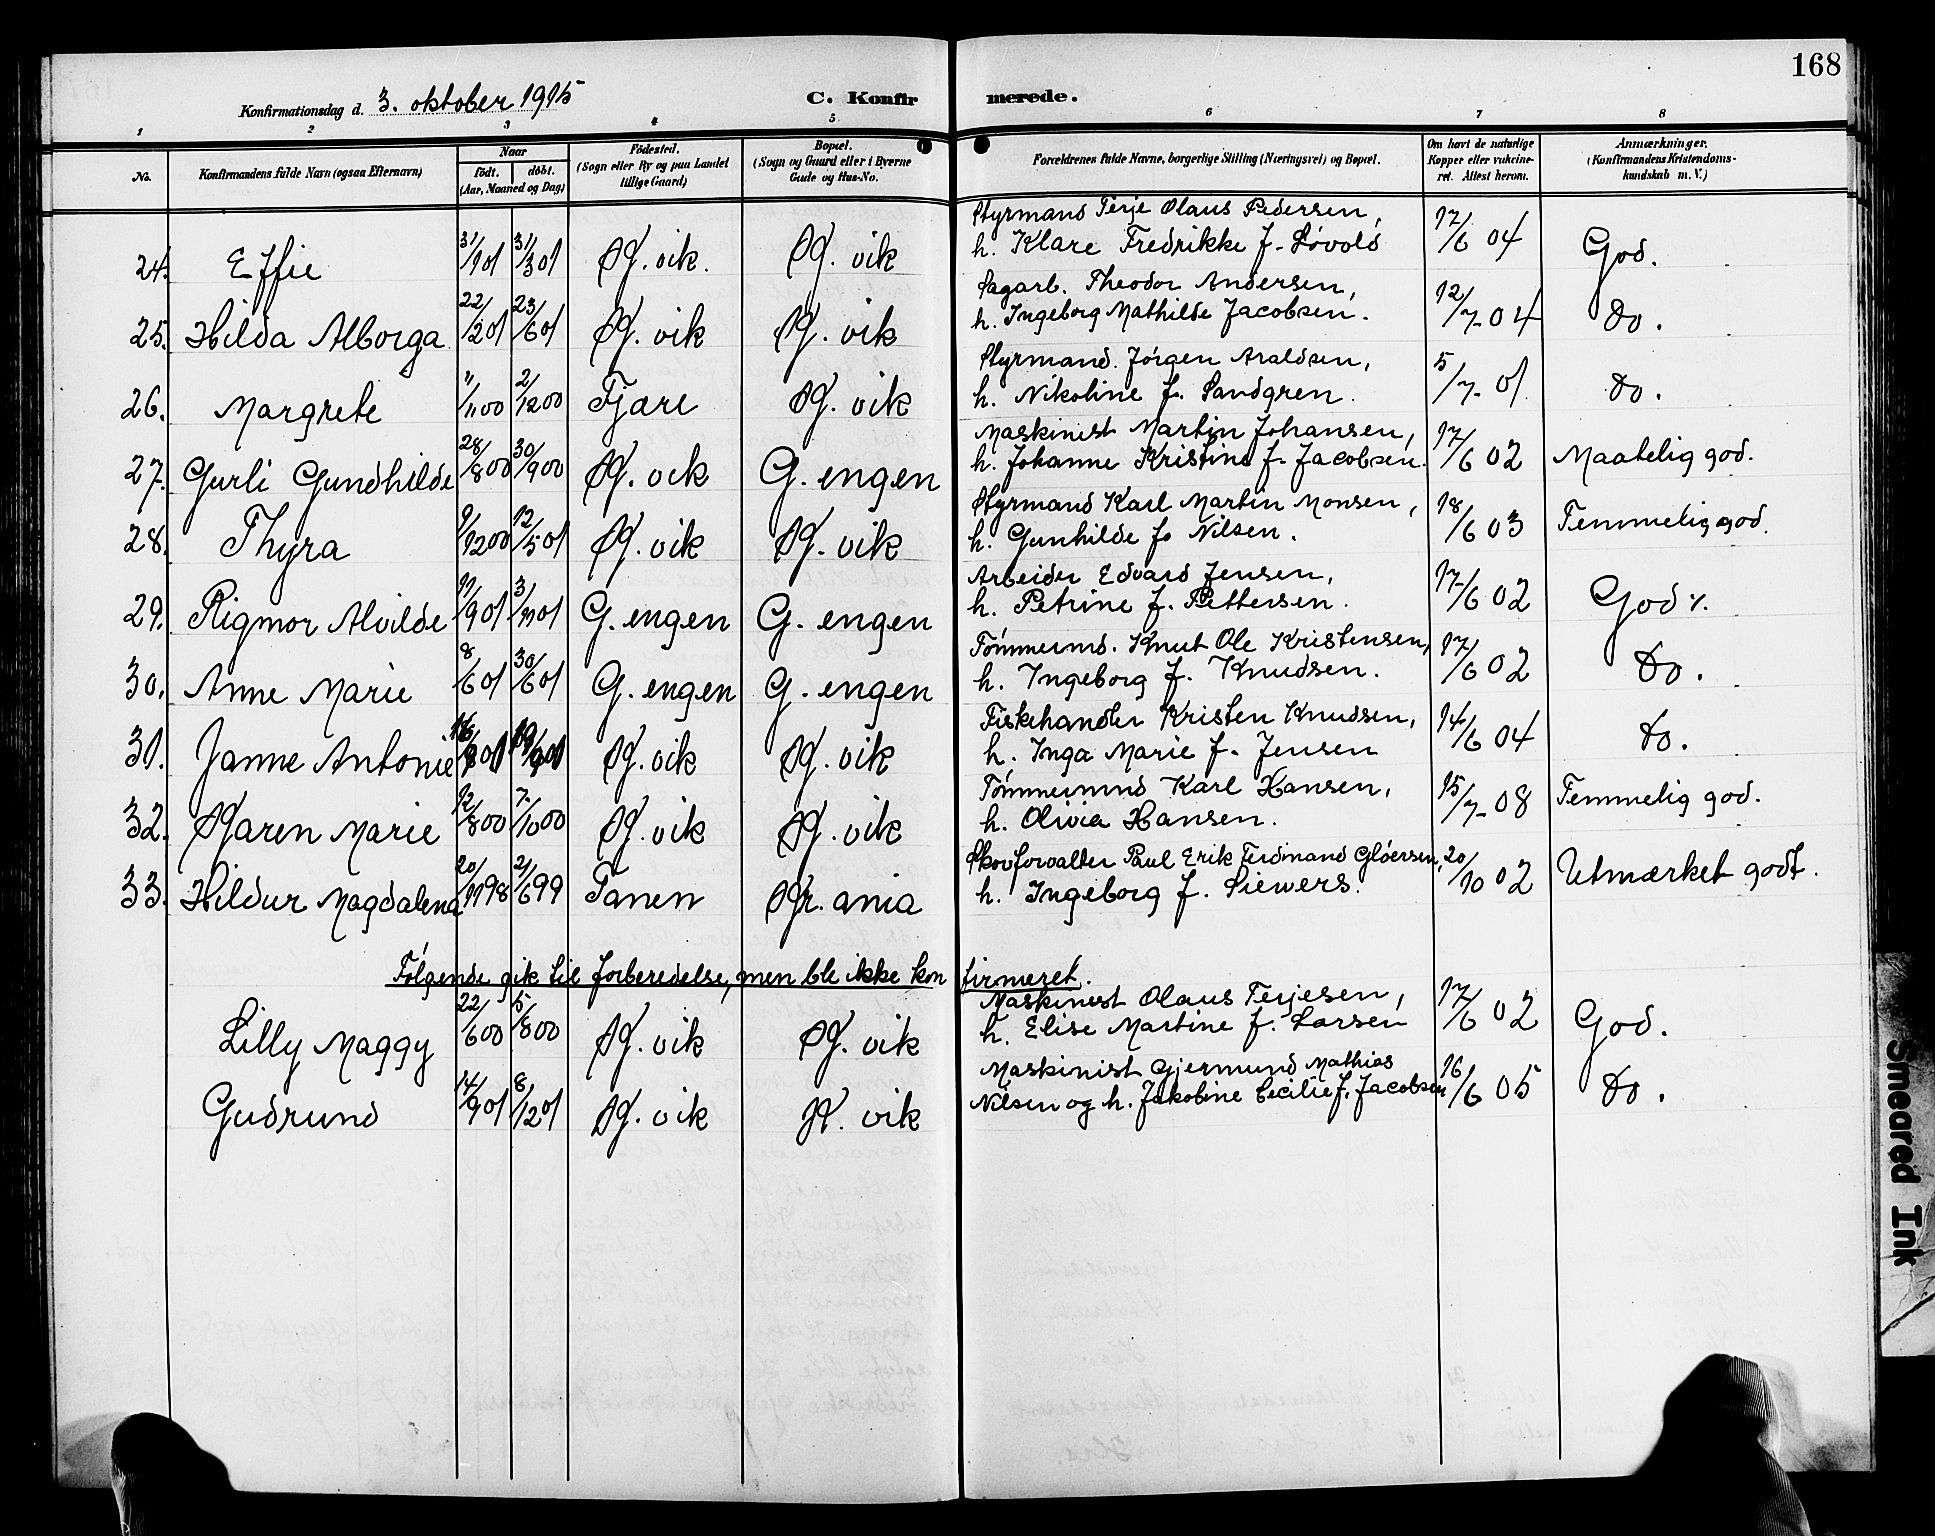 168
Konfirmationsdag d. 3. oktober 1915
C. Konfirmerede.
1 2 3 4 5 6 7 8
No.
Konfirmandens fulde Navn (ogsaa Efternavn)
Naar
født. døbt.
(Aar, Maaned og Dag)
Fødested.
(Sogn eller By og paa Landet
tillige Gaard)
Bopæl.
(Sogn og Gaard eller i Byerne
Gade og Hus-No.
Forældrenes fulde Navne, borgerlige Stilling (Næringsvei) og Bopæl.
Om havt de naturlige
Kopper eller vakcine-
ret. Attest herom.
Anmærkninger.
(Konfirmandens Kristendoms-
kundskab m. V.)
Styrmand Terje Olaus Pedersen,
24. Effie 31/1 01 31/3 01 vik. vik h. Klare Fredrikke f. Løvold 17/6 04 God.
Sagarb. Theodor Andersen,
25. Hilda Alborga 22/2 01 23/6 01 vik vik h. Ingeborg Mathilde Jacobsen. 12/7 04 Do.
Styrmand. Jørgen Araldsen,
26. Margrete 11/11 00 2/12 00 Fjære vik h. Nikoline f. Sandgren. 5/7 01. Do.
Maskinist Martin Johansen,
27. Gurli Gundhilde 28/8 00 30/9 00 vik G. engen h. Johanne Kristine f. Jacobsen. 17/6 02 Maatelig god.
Styrmand Karl Martin Monsen,
28. Thyra 9/12 00 12/5 01 vik vik h. Gunhilde f. Nilsen. 18/6 03 Temmelig god.
Arbeider Edvard Jensen,
29. Rigmor Alvilde 11/9 01 3/11 01 G. engen G. engen h. Petrine f. Pettersen. 17/6 02 God.
Tømmermd. Knut Ole Kristensen,
30. Anne Marie 8/6 01 30/6 01 G. engen G. engen h. Ingeborg f. Knudsen. 17/6 02 Do.
Fiskehandler Kristen Knudsen,
31. Janne Antonie vik vik h. Inga Marie f. Jensen 14/6 04 Do.
Tømmermnd Karl Hansen,
32. Karen Marie 12/8 00 7/10 00 vik vik h. Olivia Hansen. 15/7 08 Temmelig god.
Skovforvalter Paul Erik Ferdinand Gløersen,
33. Hildur Magdalena 20/11 98 21/6 99 Tanen Kr. ania h. Ingeborg f. Siewers. 20/10 02 Utmærket godt.
Følgende gik til forberedelse, men ble ikke konfirmeret.
Maskinist Olaus Terjesen,
Lilly Maggy 22/6 00 5/8 00 vik vik h. Elise Martine f. Larsen 17/6 02 God.
Maskinist Gjermund Mathias
Gudrund 14/9 01 8/12 01 vik vik Nilsen og h. Jakobine Cecilie f. Jacobsen 16/6 05 Do.
Smeared Ink